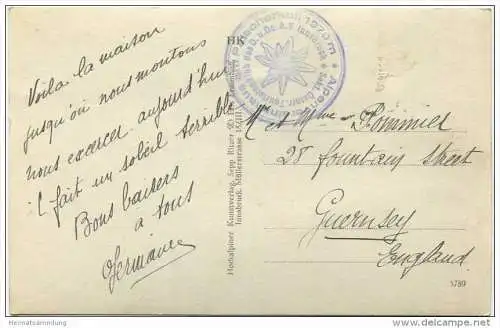 Voila la maison
jusqu'où nous montons
nous exercer aujourd'hui
il fait un soleil terrible
Bons baisers
à tous
Germaine
HK
1970 m
Hochalpiner Kunstverlag, Sepp Ritzer
Innsbruck, Müllerstrasse
Mr et Mme Rommier
28 fountain street
Guernsey
England
5789
Heimatsammlung